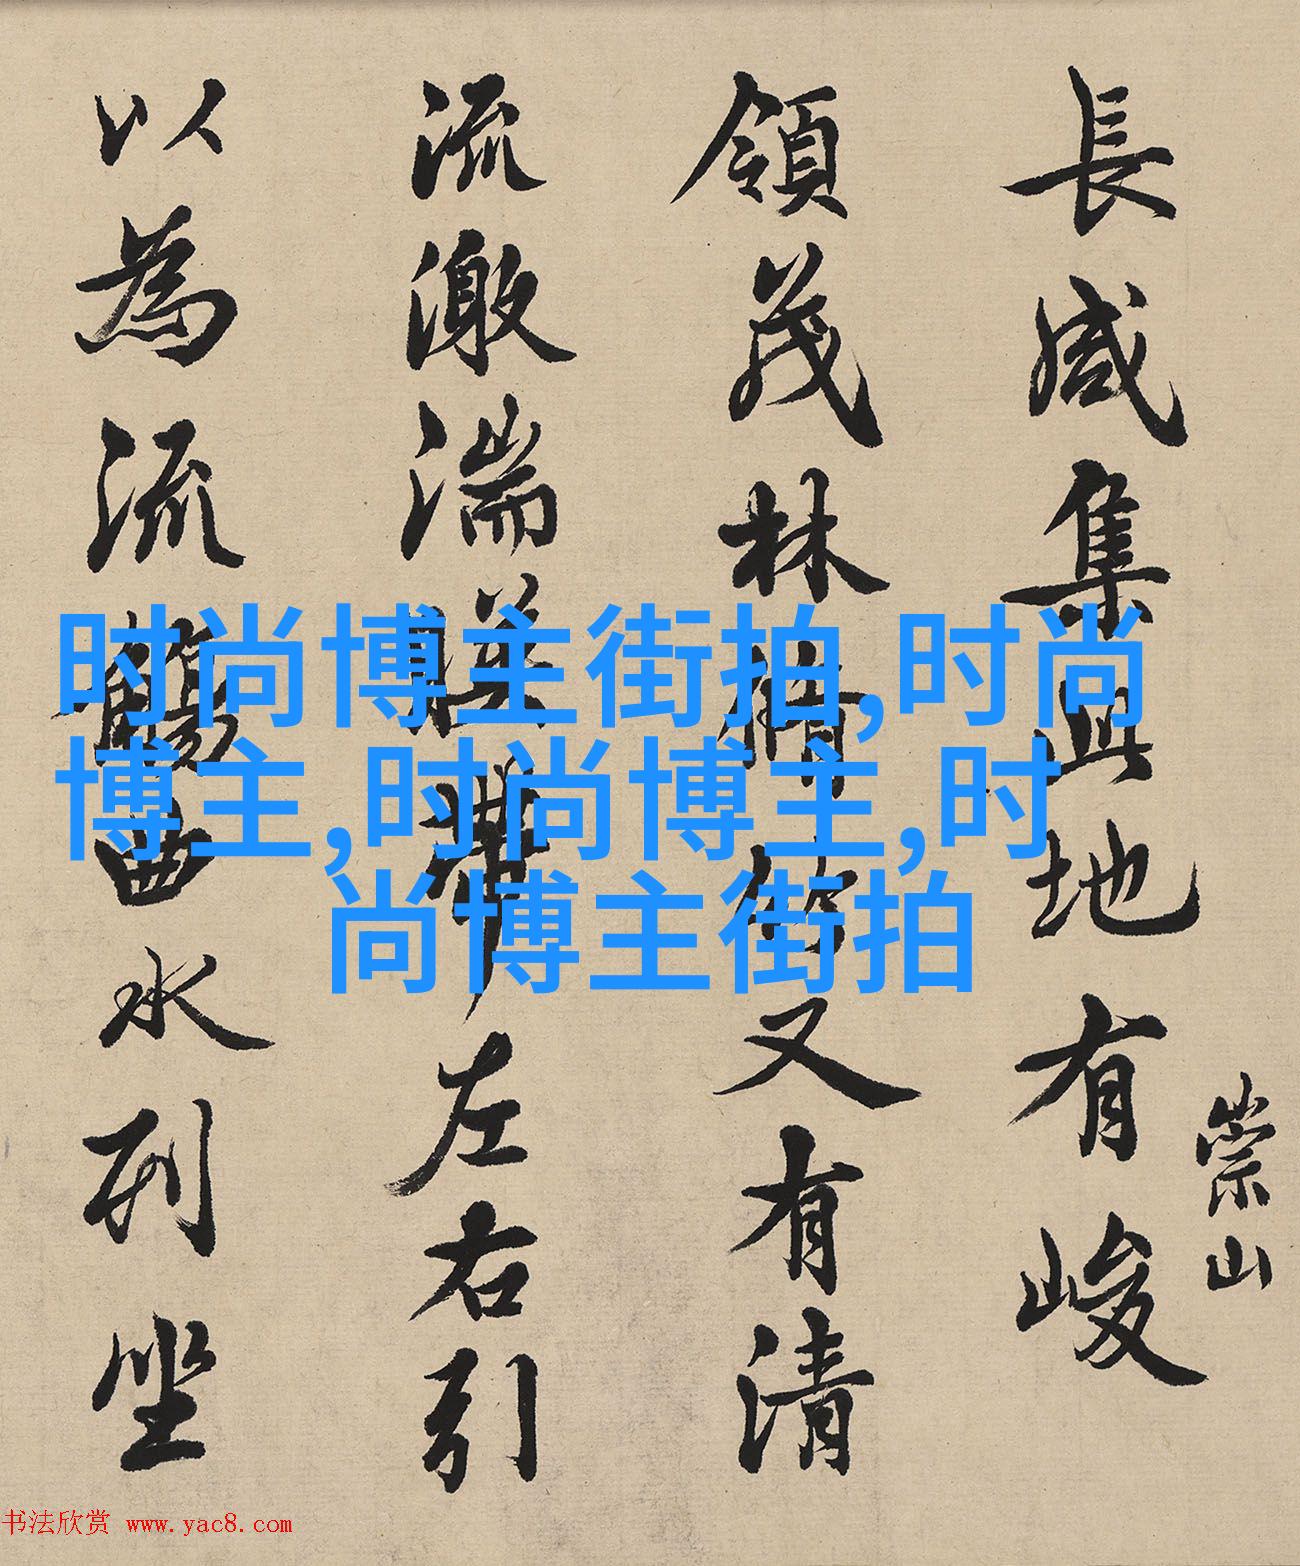 長咸集此地有峻
崇山
領茂林脩竹又有清
流激湍暎帶左右引
以為流觴曲水列坐
时尚博主街拍,时尚
博主,时尚博主,时
尚博主街拍
书法欣赏 www.yac8.com